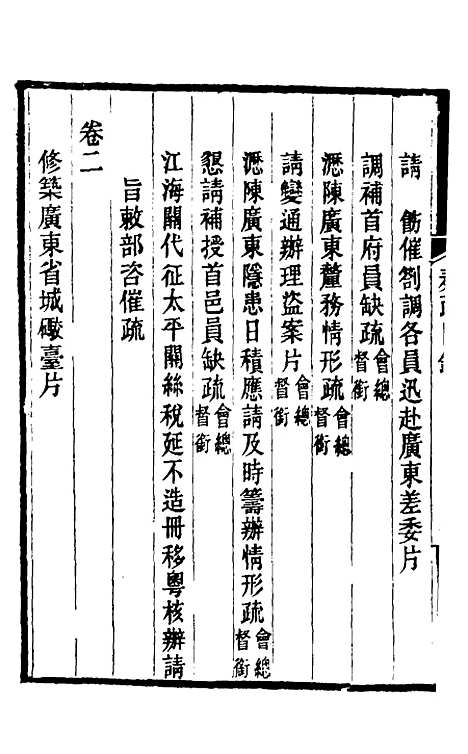 請 飭催劄調各員迅赴廣東差委片
調補首府員缺疏會總督銜
瀝陳廣東釐務情形疏會總督銜
請變通辦理盜案片會總督銜
瀝陳廣東隱患日積應請及時籌辦情形疏會總督銜
懇請補授首邑員缺疏會總督銜
江海關代征太平關絲稅延不造冊移粵核辦請
旨敕部咨催疏
卷二
修築廣東省城礮臺片